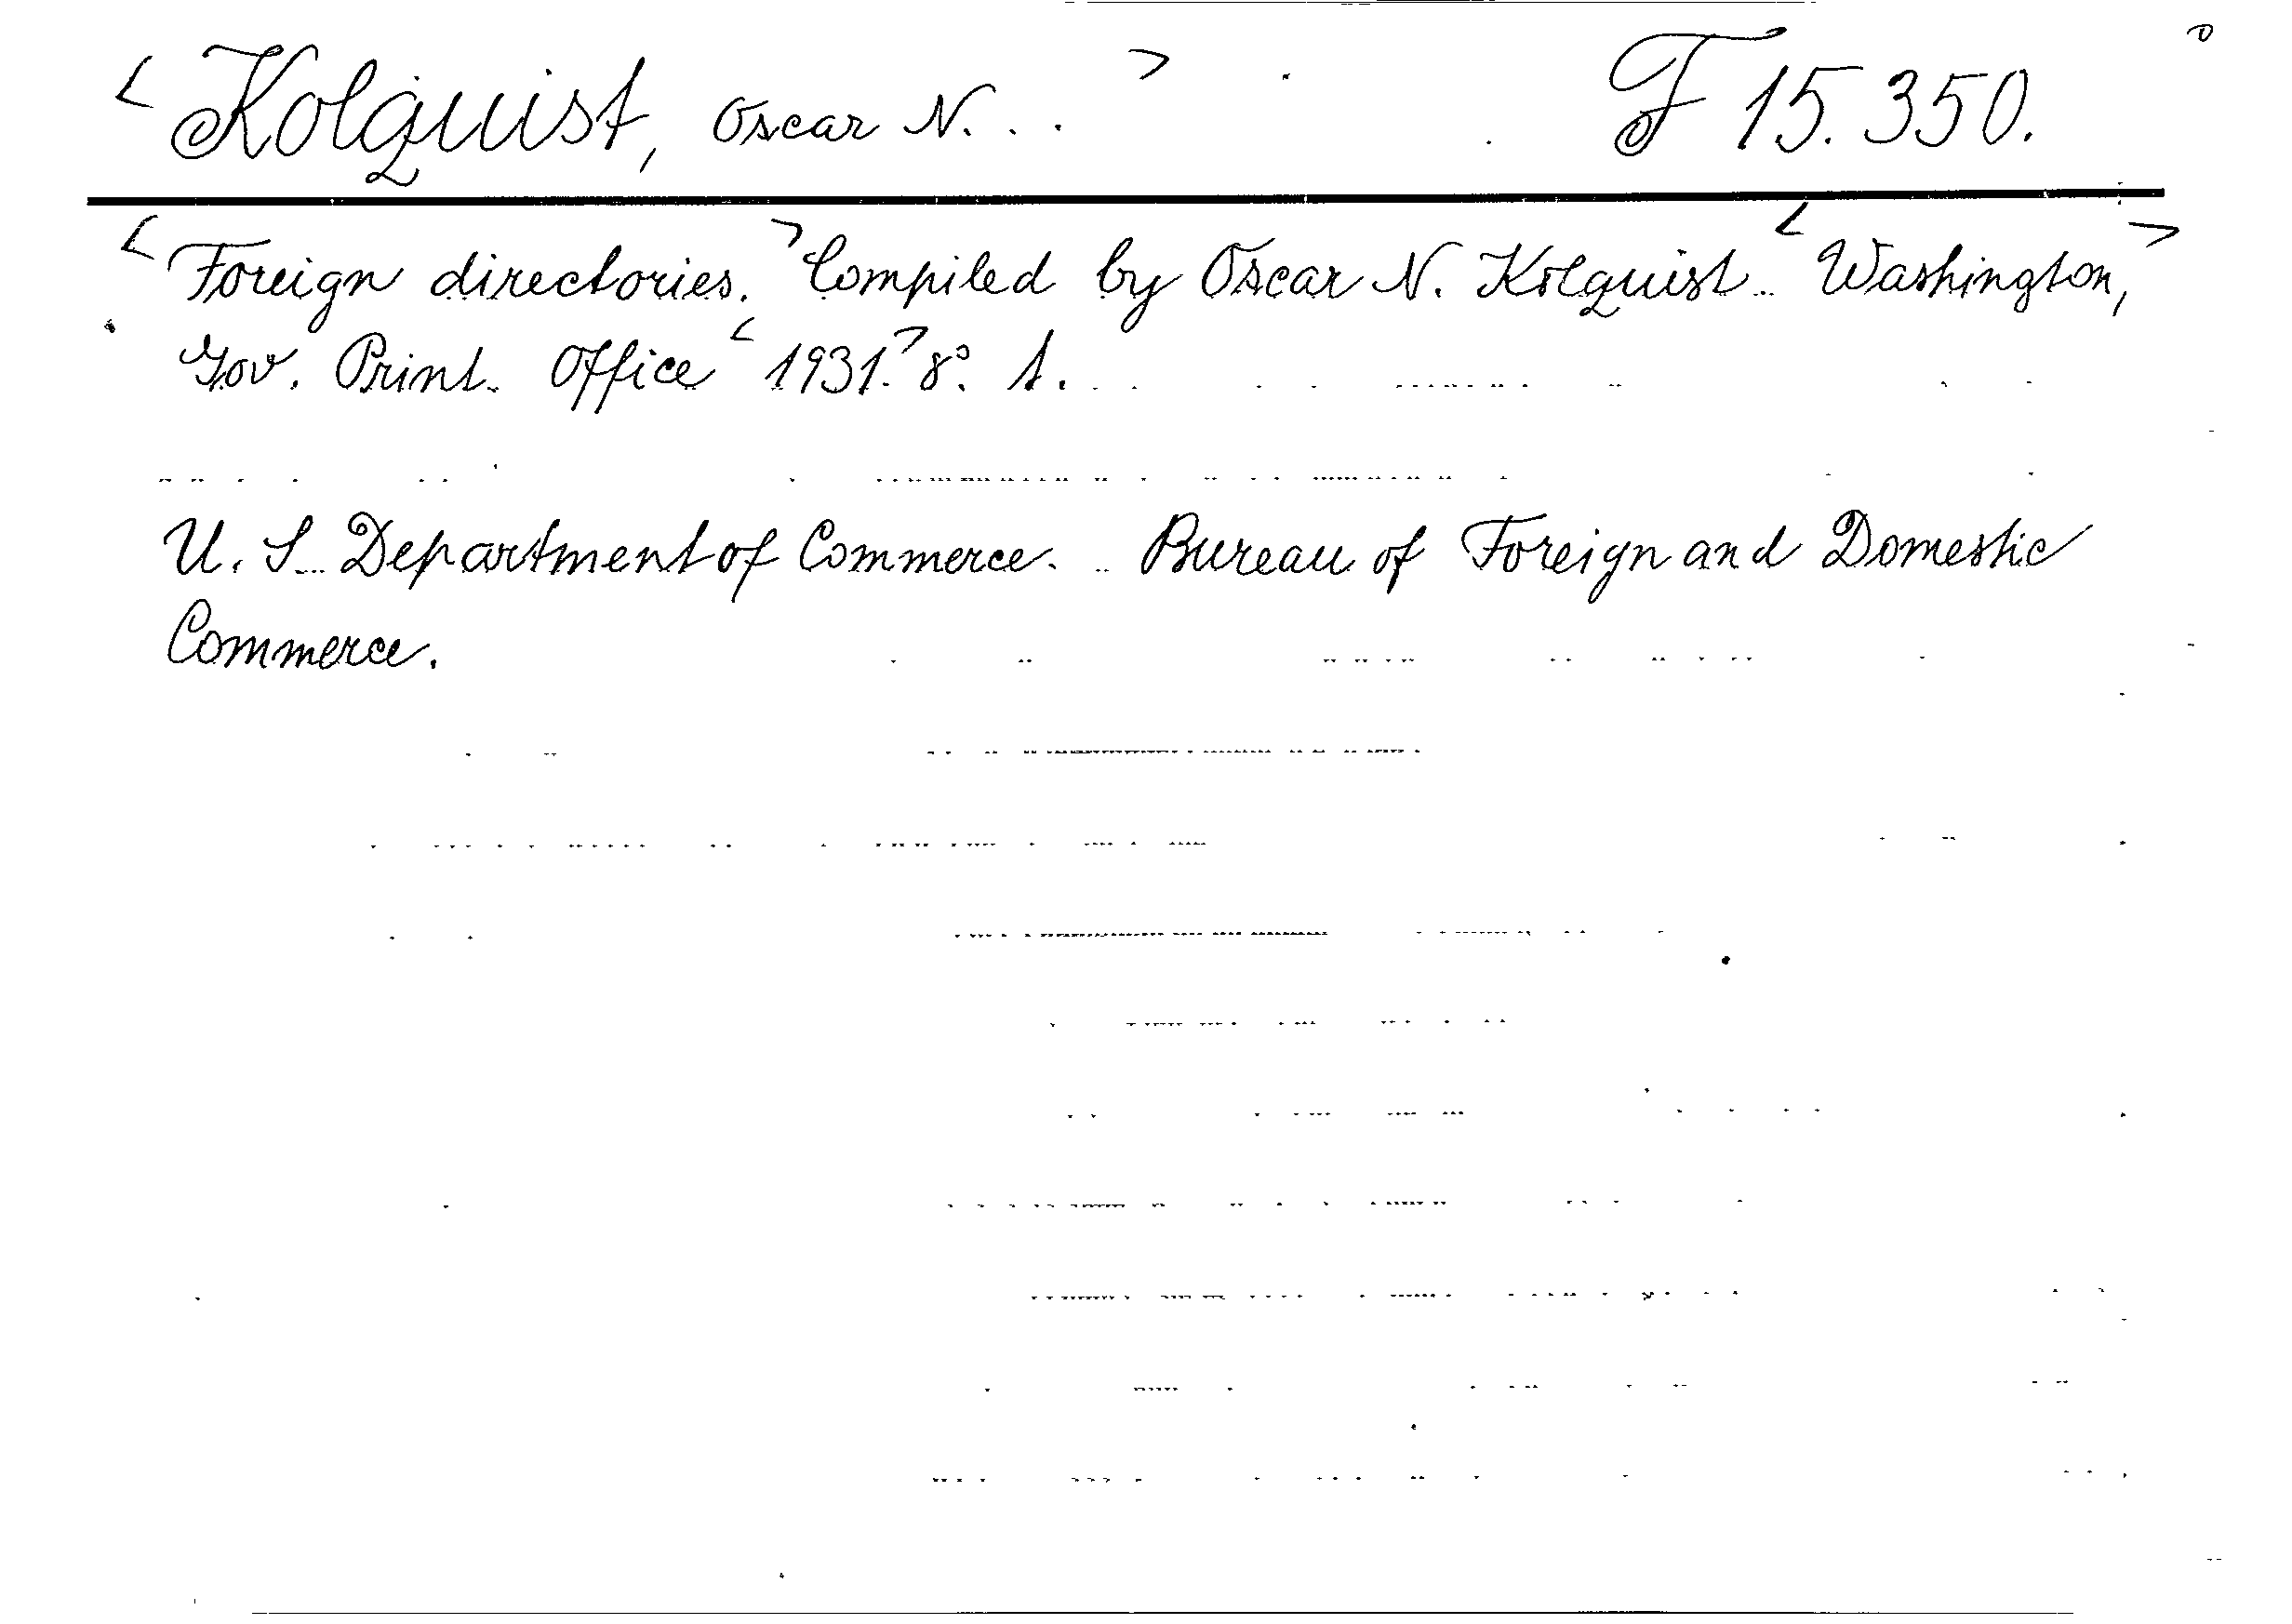 < Kolquist, Oscar N. . . > F 15.350.
< Foreign directories. > Compiled by Oscar N. Kolquist. < Washington, >
Gov. Print. Office < 1931. > 8°. 1.
U. S. Department of Commerce. Bureau of Foreign and Domestic
Commerce.